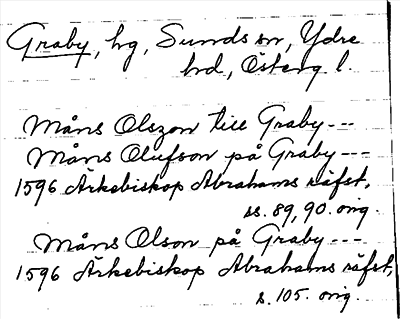 Graby, hg, Sunds sn, Ydre
hd, Österg l.
Måns Olszon till Graby ---
Måns Olufson på Graby ---
1596 Ärkebiskop Abrahams räfst,
ss. 89, 90. orig.
Måns Olson på Graby ---
1596 Ärkebiskop Abrahams räfst,
s. 105. orig.